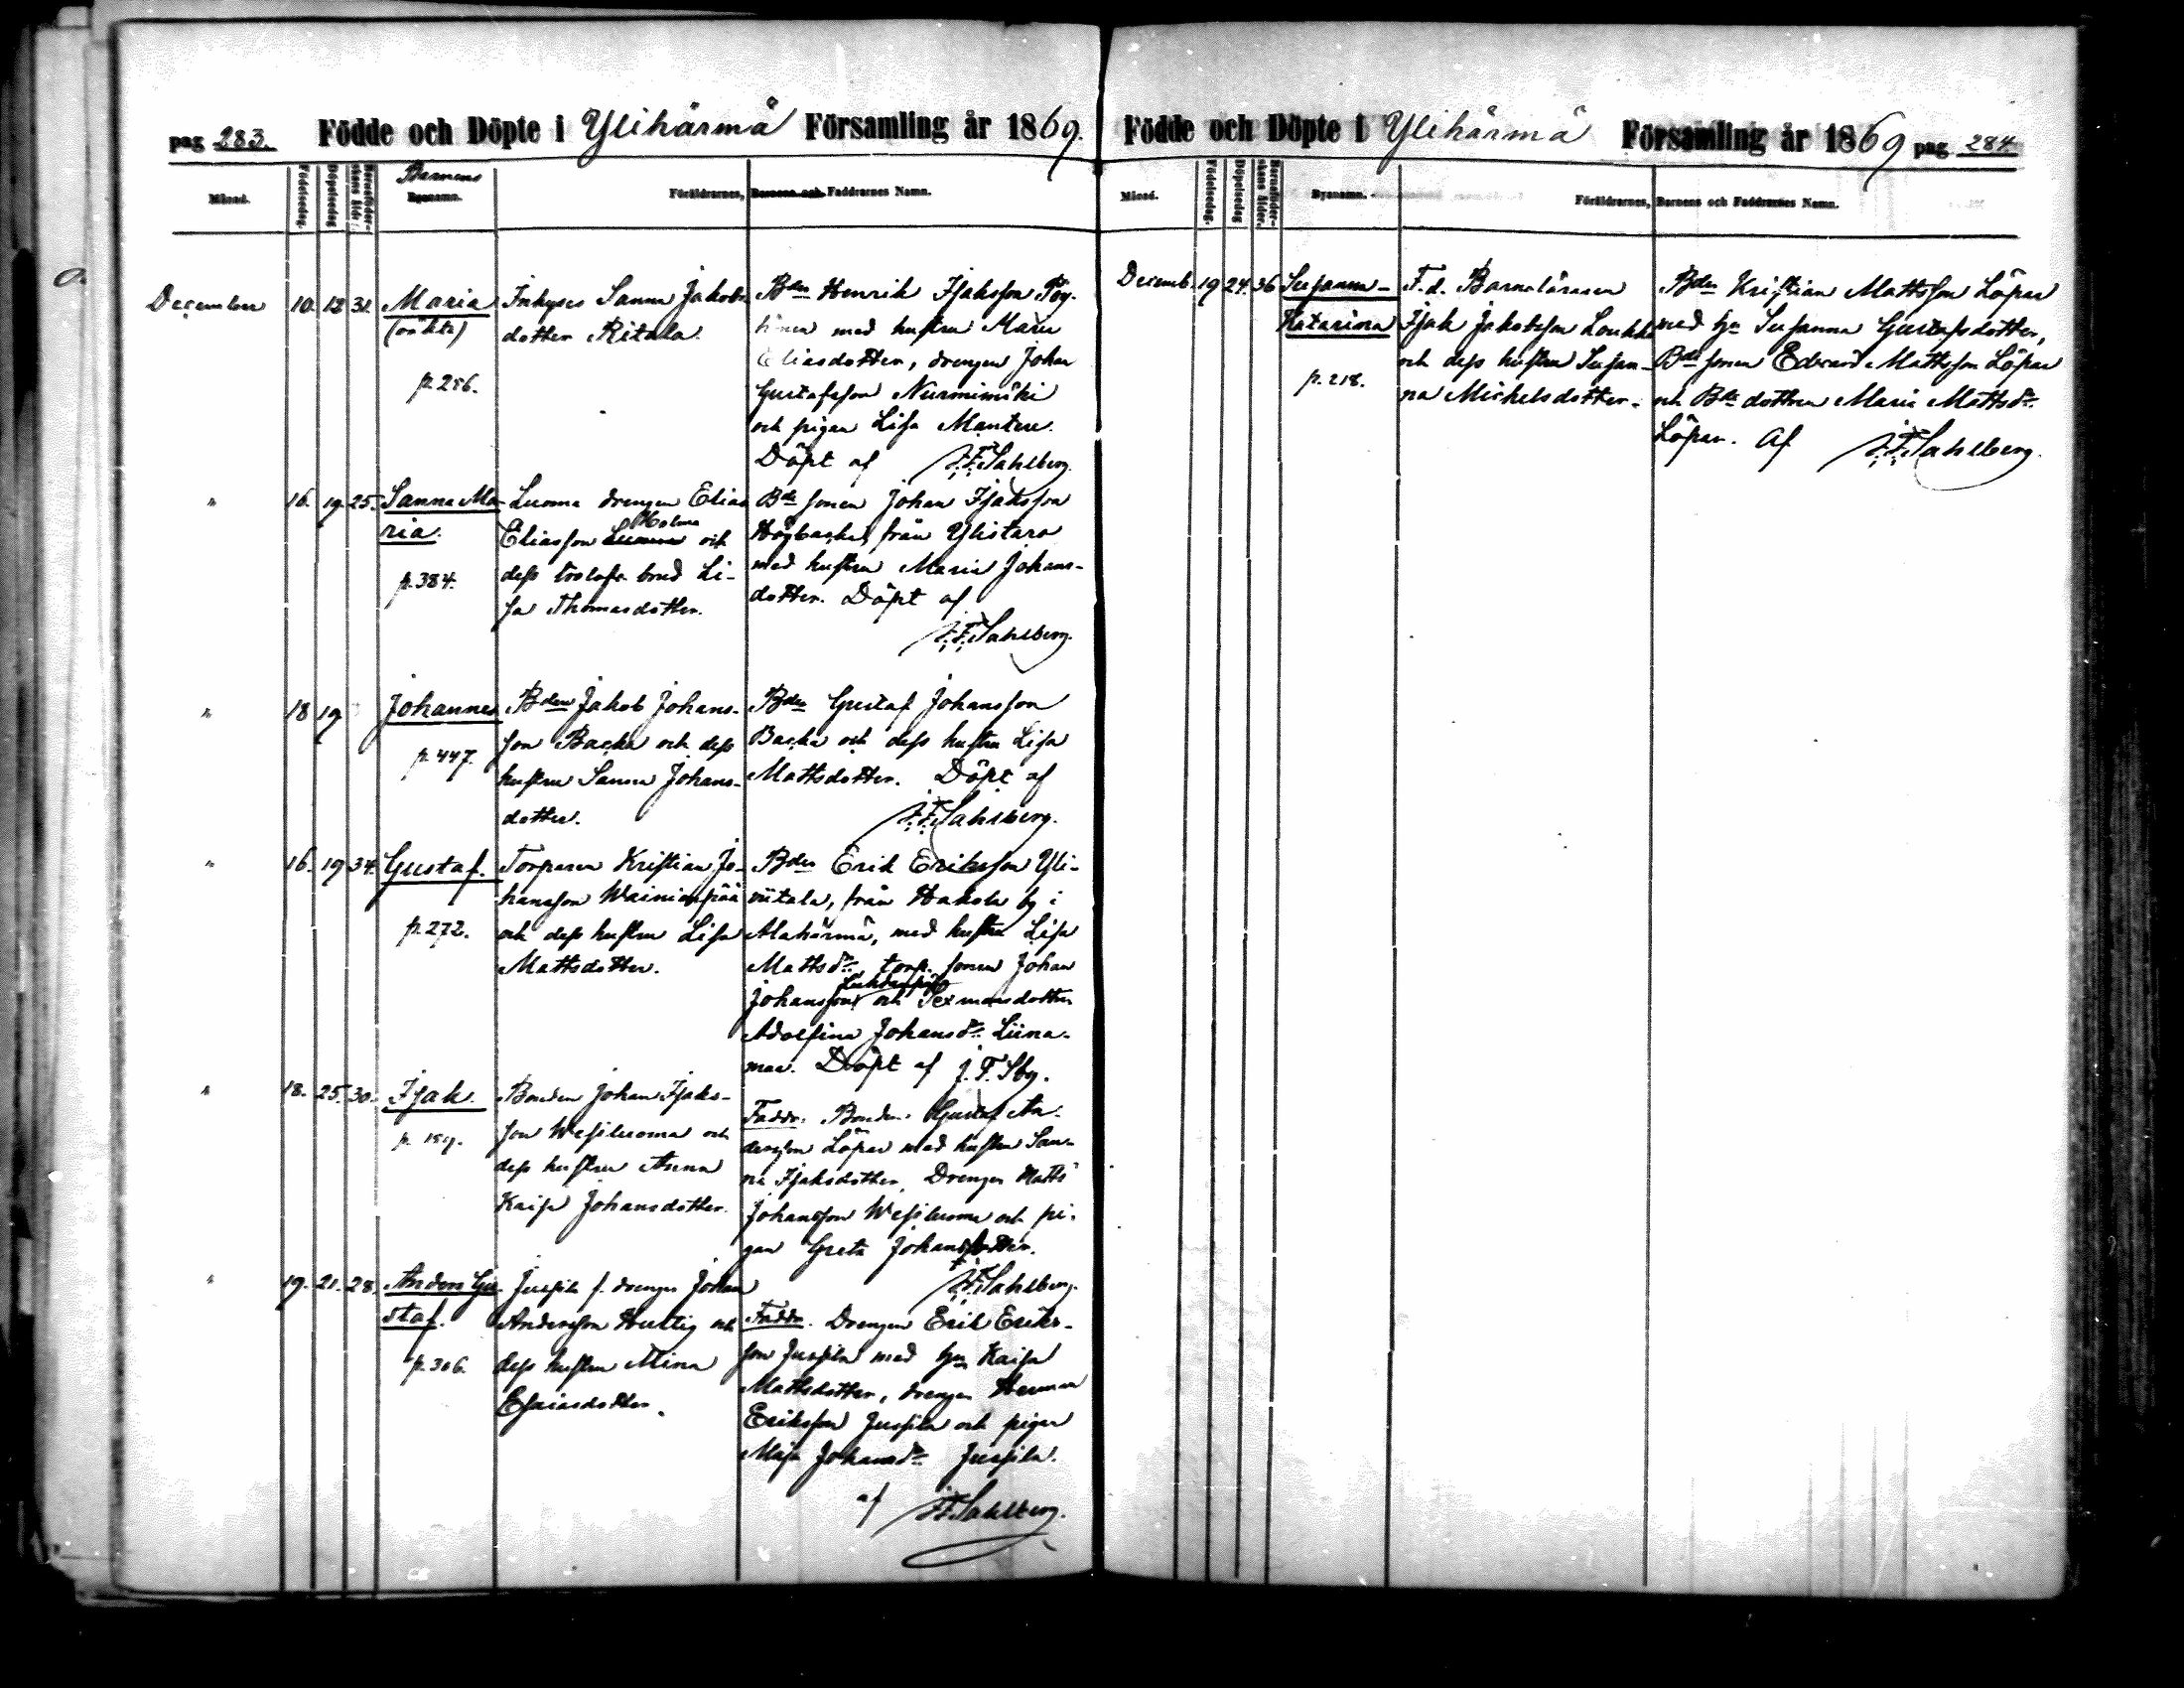 pag 283. Födde och Döpte i Ylihärmä Församling år 1869.
Barnens
Månad. Födelsedag. Döpelsedag Barnaföder-skans ålder. Bynamn. Föräldrarnes, Barnens och Faddrarnes Namn.
December 10. 12 31. Maria
(oäkta)
p. 256.
Inhyses Sanna Jakobs
dotter Ritala.
Bden Henrik Isaksson Pöy-
hönen med hustru Maria
Eliasdotter, drengen Johan
Gustafsson Nurmimäki
och pigan Lisa Mantere.
Döpt af J. F. Sahlberg.
" 16. 19. 25. Sanna Ma-
ria.
p. 384.
Luoma drengen Elias
Holma
Eliasson Luoma och
dess trolofv. brud Li-
sa Thomasdotter.
Bde sonen Johan Isaksson
Högbacka, från Ylistaro
med hustru Maria Johans-
dotter. Döpt af
J. F. Sahlberg.
" 18 19 Johannes
p. 447.
Bden Jakob Johans-
son Backa och dess
hustru Sanna Johans-
dotter.
Bden Gustaf Johansson
Backa och dess hustru Lisa
Mattsdotter. Döpt af
J. F. Sahlberg.
" 16. 19 34. Gustaf.
p. 272.
Torparen Kristian Jo-
hansson Wainionpää
och dess hustru Lisa
Mattsdotter.
Bden Erik Eriksson Yli-
viitala, från Hakola by i
Alahärmä, med hustru Lisa
Mattsdr, torp. sonen Johan
Johansson och Sexmansdottren
Adolfina Johansdr Liina-
maa. Döpt af J. F. Sbg.
" 18. 25. 30. Isak.
p. 159.
Bonden Johan Isaks-
son Wesiluoma och
dess hustru Anna
Kaisa Johansdotter.
Faddr. Bonden Gustaf An-
dersson Löpar med hustru San-
na Isaksdotter, Drengen Matts
Johansson Wesiluoma och pi-
gan Greta Johansdotter.
J. F. Sahlberg.
" 19. 21. 28. Anders Gu-
staf.
p. 306.
Juspila f. drengen Johan
Andersson Huttig och
dess hustru Mina
Esaiasdotter.
Faddr. Drengen Erik Eriks-
son Juspila med hu Kaisa
Mattsdotter, drengen Herman
Eriksson Juspila och pigan
Maja Johansdr Juspila.
af J. F. Sahlberg.
Födde och Döpte i Ylihärmä Församling år 1869 pag 284
Månad. Födelsedag. Döpelsedag Barnaföder-skans ålder. Bynamn. Föräldrarnes, Barnens och Faddrarnes Namn.
Decemb. 19 24. 36 Susanna-
Katarina
p. 218.
F. d. Barnaläraren
Isak Jakobsson Loukko
och dess hustru Susan-
na Michelsdotter.
Bden Kristian Mattsson Löpar
med hu Susanna Gustafsdotter,
Bde sonen Edvard Mattsson Löpar
och Bde dottren Maria Mattsdr
Löpar. Af J. F. Sahlberg.